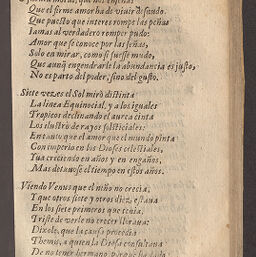 Que el firme amor ha de viuir desnudo.
Que puesto que interes rompe las peñas
Iamas al verdadero romper pudo:
Amor que se conoce por las señas,
Solo en mirar, como si fuesse mudo,
Que aunq̃ engendrarle la abundancia es justo,
No es parto del poder, sino del gusto.
Siete vezes el Sol mirò distinta
La linea Equinocial, y a los iguales
Tropicos declinando el aurea cinta
Los ilustrò de rayos solsticiales:
En tanto que el amor que el mundo pinta
Con imperio en los Dioses celestiales,
Yua creciendo en años y en engaños,
Mas detuuose el tiempo en estos años.
Viendo Venus que el niño no crecia,
Y que otros siete y otros diez, estaua
En los siete primeros que tenia,
Triste de verle no crecer lloraua:
Dixole, que la causa procedia
Themis, a quien la Diosa consultaua
De no tener hermano